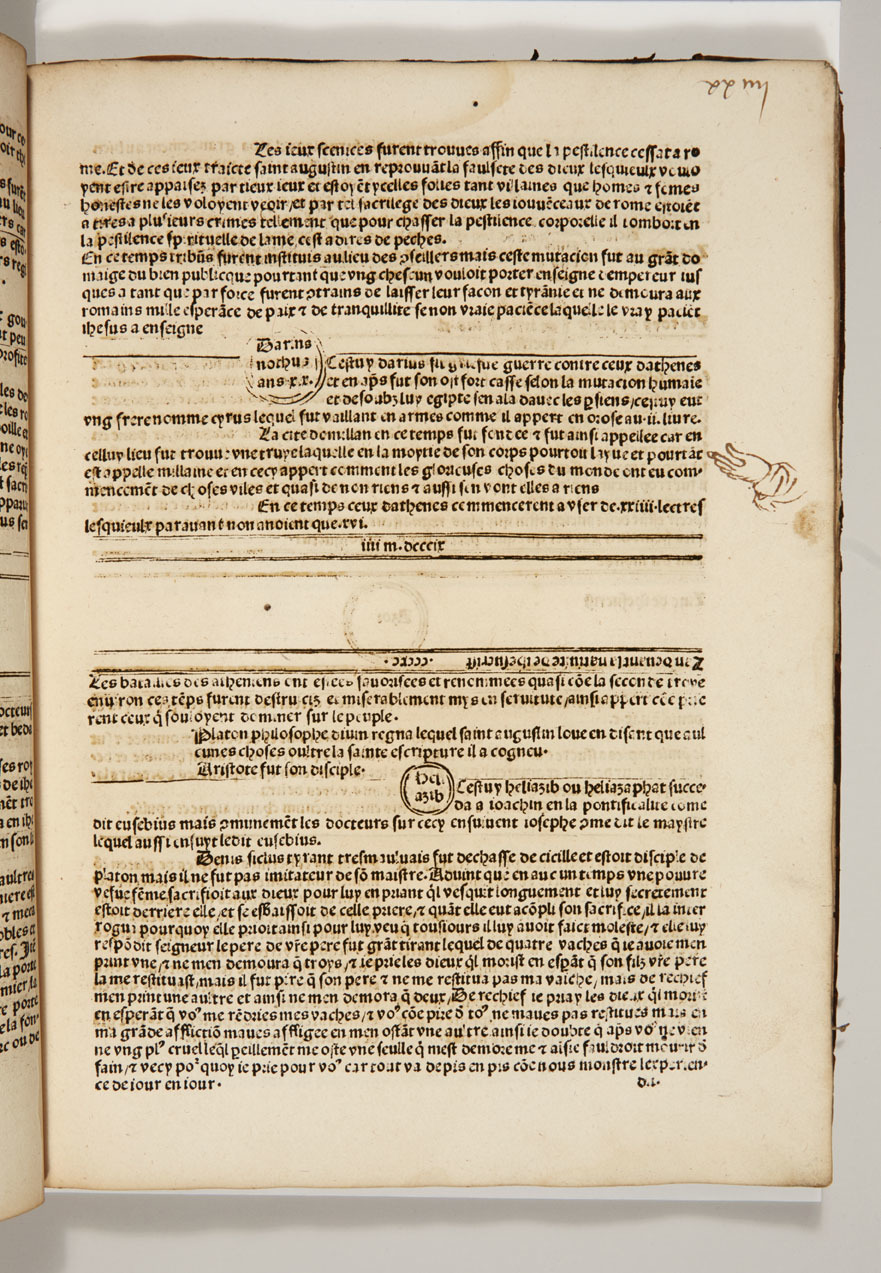 iiii xx
Les ieux scenices furent trouues affin que la pestilence cessat a ro
me. Et de ces ieux traicte saint augustin en reprouuãt la faulsete des dieux lesquieulx
pent estre appaisez par tieux ieux et estoyẽt ycelles folies tant villaines que hõmes ⁊ femes
hõnestes ne les voloyent veoir/et par tel sacrilege des dieux les iouuẽceaux de rome estoiẽt
a tires a plusieurs crimes tellement que pour chasser la pestilence corporelle il tomboit en
la pestilence spirituelle de lame, cest a dires de peches.
En ce temps tribũs furent instituis au lieu des ꝯseillers mais ceste mutacion fut au grãt do
maige du bien publicque pourtant que vng chescun vouloit porter enseigne dempereur ius
ques a tant que par force furent ꝯtrains de laisser leur facon et tyrãnie et ne demoura aux
romains nulle esperãce de paix ⁊ de tranquillite se non vraie paciẽce laquelle le vray paciẽt
ihesus a enseigne
Darius
nothus
ans x.x.
Cestuy darius guerre contre ceux dathenes
et en aps fut son ost fort casse selon la mutacion humaie
et desoubz luy egipte sen ala dauec les ꝑsiens/ceſtuy eut
vng frere nomme cyrus lequel fut vaillant en armes comme il appert en orose au.ii.liure.
La cite de millan en ce temps fut fondee ⁊ fut ainsi appellee car en
celluy lieu fut trouuee vne truye laquelle en la moytie de son corps pourtoit layne et pourtãt
est appelle millaine et en cecy appert comment les glorieuses choses du monde ont eu com-
mencemẽt de choses viles et quasi de non riens ⁊ aussi sen vont elles a riens
En ce temps ceux dathenes commencerent a vser de.xxiiii.lectres
lesquieulx parauant non auoient que.xvi.
iiii m.dcccix
Les batailles des atheniens ont estees fauorisees et renommees quasi cõe la seconde troye
enuiron ces tẽps furent destruictz et miserablement mys en seruitute/ainsi appert
rent ceux q̃ souloyent dominer sur le peuple.
Platon philosophe diuin regna lequel saint augustin loue en disant que aul
cunes choses oultre la sainte escripture il a cogneu.
Aristote fut son disciple.
Heli
azib
Cestuy heliazib ou heliazaphat succe-
da a ioachin en la pontificalite come
dit eusebius mais ꝯmunemẽt les docteurs sur cecy ensuiuent iosephe ꝯme dit le maystre
lequel aussi ensuyt ledit eusebius.
Denis siclus tyrant tresmauluais fut dechasse de cicille et estoit disciple de
platon mais il ne fut pas imitateur de sõ maistre. Aduint que en aucun temps vne pouure
vesue fẽme sacrifioit aux dieux pour luy en priant q̃l vesquit longuement et luy secretement
estoit derriere elle/et se esbaissoit de celle priere/⁊ quãt elle eut acõpli son sacrifice/il la inter
rogui pourquoy elle prioit ainsi pour luy veu q̃ tousiours il luy auoit faict moleste/⁊ elle luy
respõdit seigneur le pere de vr̃e pere fut grãt tirant lequel de quatre vaches q̃ ie auoie men
print vne/⁊ ne men demoura q̃ troys/⁊ ie prie les dieux q̃l morist en espãt q̃ son filz vr̃e pere
la me restituast/mais il fut pire q̃ son pere ⁊ ne me restitua pas ma vaiche/mais de rechief
men print vne aultre et ainsi ne men demora q̃ deux/De rechief ie pray les dieux q̃l morut
en esperãt q̃ voꝰ me rẽdries mes vaches/⁊ voꝰ cõe pire õ toꝰ ne maues pas restitues mais en
ma grãde afflictiõ maues affligee en men ostãt vne aultre ainsi ie doubte q̃ aps voꝰ ne vien
ne vng plꝰ cruel leq̃l ꝑeillemẽt me oste vne seulle q̃ mest demoree me ⁊ aisie fauldroit mourir õ
fain/⁊ vecy poꝰ quoy ie prie pour voꝰ car tout va de pis en pis cõe nous monstre lexperien-
ce de iour en iour.
d.i.